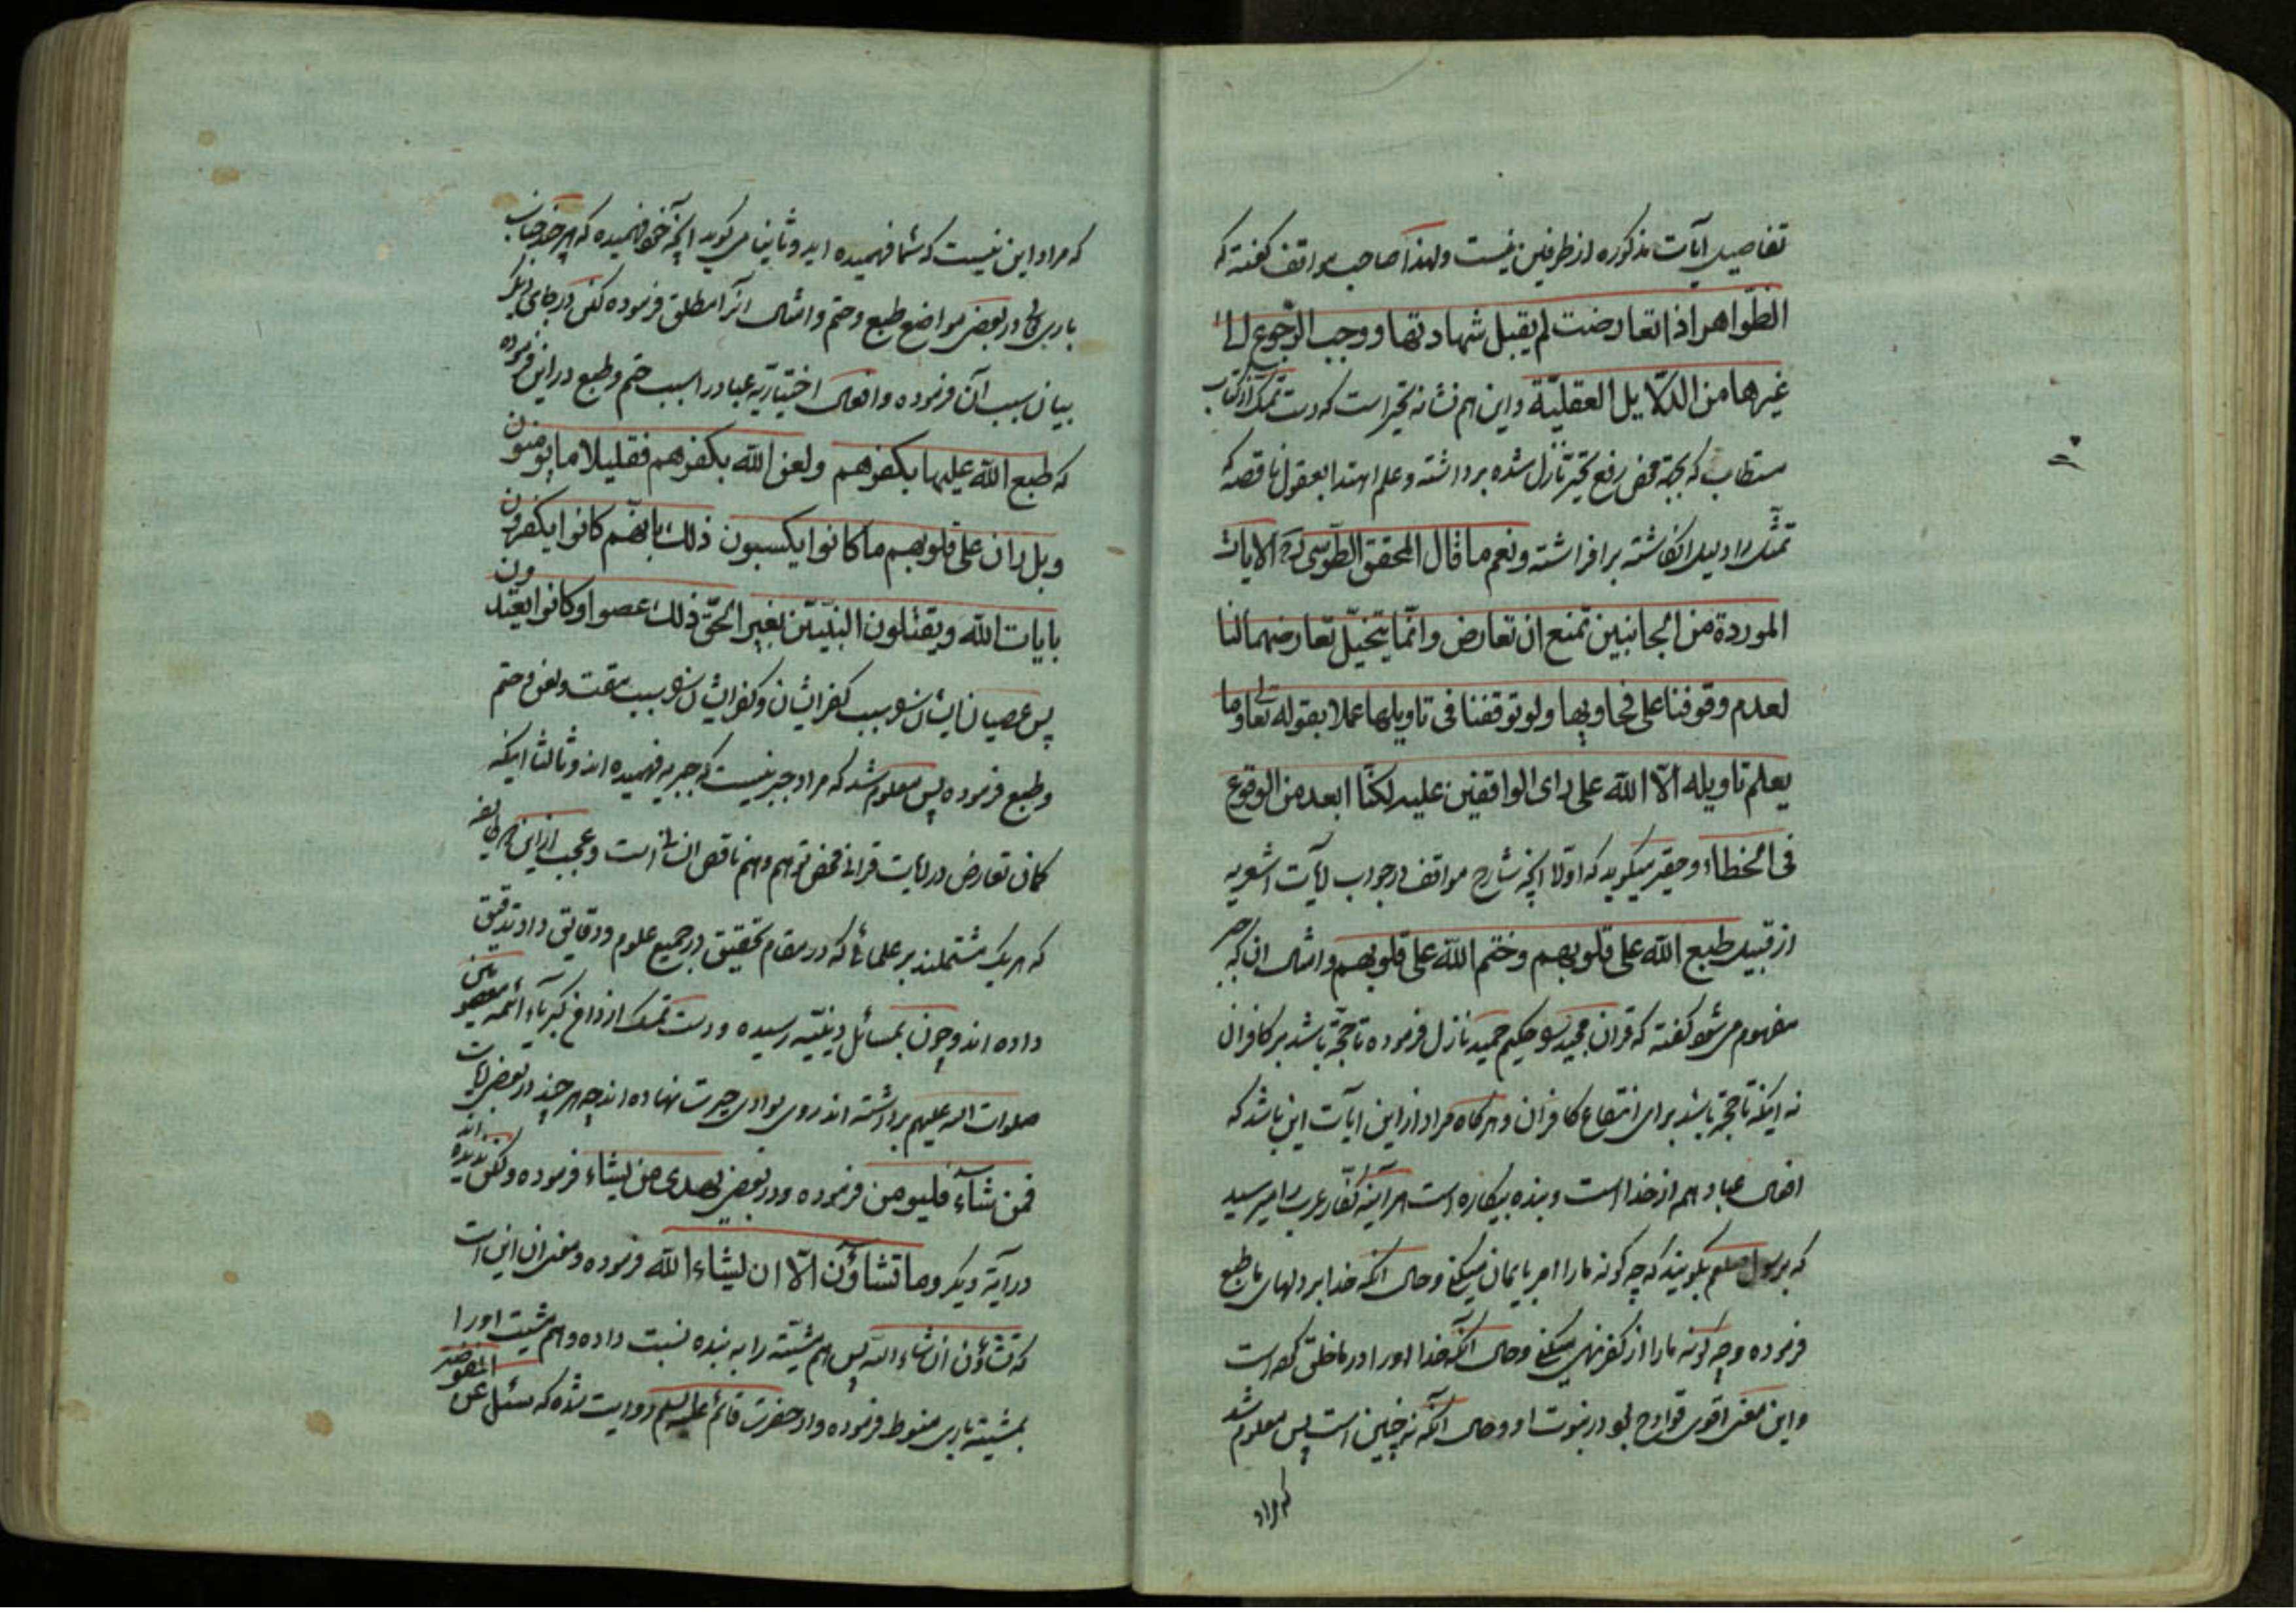 تفاصیل آیات مذکوره از طرفین نیست ولهذا صاحب مواقف گفته که
الظّواهر اذا تعارضت لم یقبل شهادتها ووجب الرّجوع الی
غیرها من الدّلایل العقلیّة واین هم نشانه تحیر است که دست تمسّک از کتاب
مستطاب که بجهة محض رفع تحیر نازل شده برداشته وعلم اهتدا بعقول ناقصه که
را دلیل انکاشته برافراشته ونعم ما قال المحقق الطّوسی ره الایات
الموردة من الجانبین تمنع ان تعارض وانّما یتخیّل تعارضهما لنا
لعدم وقوفنا علی فحاویها ولو توقفنا فی تاویلها عملا بقوله تعالی وما
یعلم تاویله الّا اللّه علی رای الواقفین علیه لکنّا ابعد من الوقوع
فی الخطاء وحقیر میگوید که اوّلا آنچه شارح مواقف در جواب آیات اشعریه
از قبیل طبع اللّه علی قلوبهم وختم اللّه علی قلوبهم وامثال ان که جبر
مفهوم می شود گفته که قران مجید را حکیم حمید نازل فرموده تا حجّة باشد بر کافران
نه اینکه تا حجّة باشد برای انتفاع کافران وهرکاه مراد از این ایآت این باشد که
افعال عباد هم از خدا است وبنده بیکاره است هر آینه کفّار عرب را میرسید
که برسول صلعم بگویند که چه کونه ما را امر بایمان میکنی وحال آنکه خدا بر دلهای ما طبع
فرموده وچه کونه ما را از کفر نهی میکنی وحال آنکه خدا اورا در ما خلق کرده است
واین معنی اقوی قوادح بود در نبوت او وحال آنکه نه چنین است پس معلوم شد
که مراد
که مراد این نیست که شما فهمیده اید وثانیا می گوید آنچه خود فهمیده که هر چند جناب
باری تعالی در بعض مواضع طبع وختم وامثال انرا مطلق فرموده لکن در جای دیگر
بیان سبب آن فرموده وافعال اختیاریّه عباد را سبب ختم وطبع در این فرموده
که طبع اللّه علیها بکفرهم ولعن اللّه بکفرهم فقلیلا ما یؤمنون
وبل ران علی قلوبهم ما کانوا یکسبون ذلک بانّهم کانوا یکفرون
بایات اللّه ویقتلون النبیّین بغیر الحقّ ذلک عصوا وکانوا یعتدون
پس عصیان ایشان را سبب کفر ایشان وکفر ایشان را سبب مقت ولعن وختم
وطبع فرموده پس معلوم شد که مراد جبر نیست که جبریه فهمیده اند وثالثا اینکه
کمان تعارض در آیات قرانی محض توهم وفهم ناقص انسانی است وعجب از این طایفه
که هریک مشتملند بر علمائی که در مقام تحقیق در جمیع علوم ودقائق داد تدقیق
داده اند وچون بمسائل دینیّه رسیده ودست تمسک از ائمه معصومین
صلوات اله علیهم برداشته اند روی بوادی حیرت نهاده اند چه هر چند در بعض آیات
فمن شآء فلیومن فرموده ودر بعض یهدی من یشاء فرموده ولکن ندیده اند
در آیة دیگر وما تشاؤن الّا ان یشاء اللّه فرموده ومعنی ان این است
که تشاؤن ان شاء اللّه پس هم مشیّته را به بنده نسبت داده وهم مشیّت او را
بمشیته باری منوط فرموده واز حضرت قائم علیه السلام روایت شده که سئل عن المفوضه